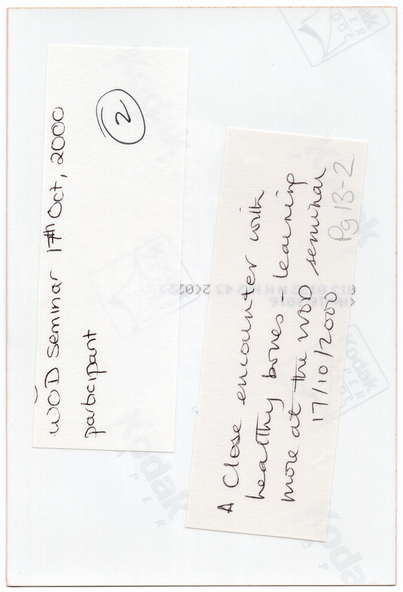 WOD Seminar 17th Oct, 2000
participant
2
A Close encounter with
healthy bones learning
more at the WOD seminar
17/10/2000
Pg 13-2
Kodak
PAPER
Kodak
PAPER
Kodak
PAPER
Kodak